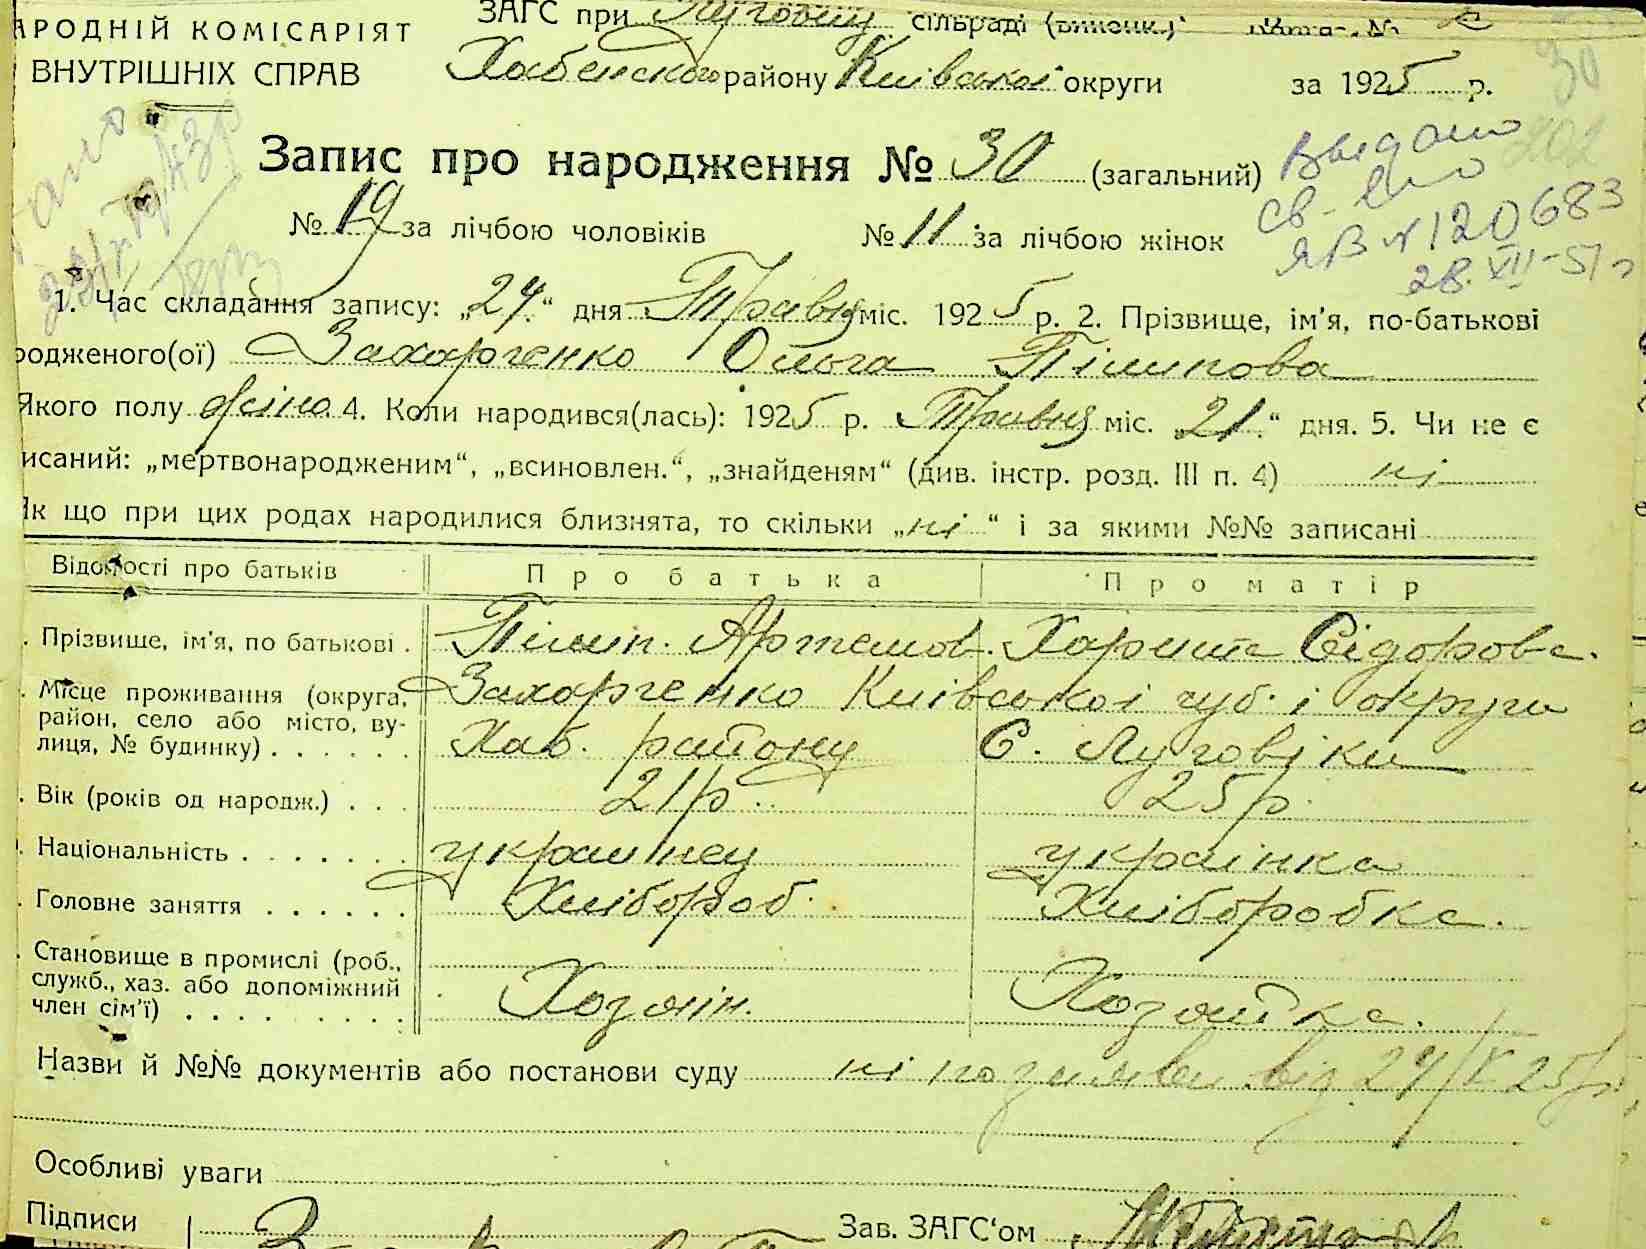 АРОДНІЙ КОМІСАРІЯТ
ВНУТРІШНІХ СПРАВ
ЗАГС при Луговіцк. сільраді (виконк.)
Хабенского району Київськоі округи за 1925 р.
30
202
Запис про народження № 30 (загальний)
Выдано
св-во
ЯВ № 120683
28.XII-51 г
№ 19 за лічбою чоловіків № 11 за лічбою жінок
1. Час складання запису: „24“ дня Травня міс. 1925 р. 2. Прізвище, ім'я, по-батькові
родженого(ої) Захарченко Ольга Пілипова
Якого полу жіно 4. Коли народився(лась): 1925 р. Травня міс. „21“ дня. 5. Чи не є
исаний: „мертвонародженим“, „всиновлен.“, „знайденям“ (див. інстр. розд. III п. 4) ні
Як що при цих родах народилися близнята, то скільки „ні“ і за якими №№ записані
Відомості про батьків Про батька Про матір
. Прізвище, ім'я, по батькові . Пілип. Артемов. Харита Сідорова.
. Місце проживання (округа, Захарченко Київськоі губ. і округи
район, село або місто, ву-
лиця, № будинку) . . . . . . Хаб. району С. Луговіки
. Вік (років од народж.) . . . 21 р. 25 р.
. Національність . . . . . . . украинец украінка
. Головне заняття . . . . . . Хлібороб. Хліборобка.
. Становище в промислі (роб.,
служб., хаз. або допоміжний
член сім'ї) . . . . . . . . . Хозяін. Хозяйка.
Назви й №№ документів або постанови суду ні по заяви від 24/V 25 р.
Особливі уваги
Підписи Зав. ЗАГС'ом